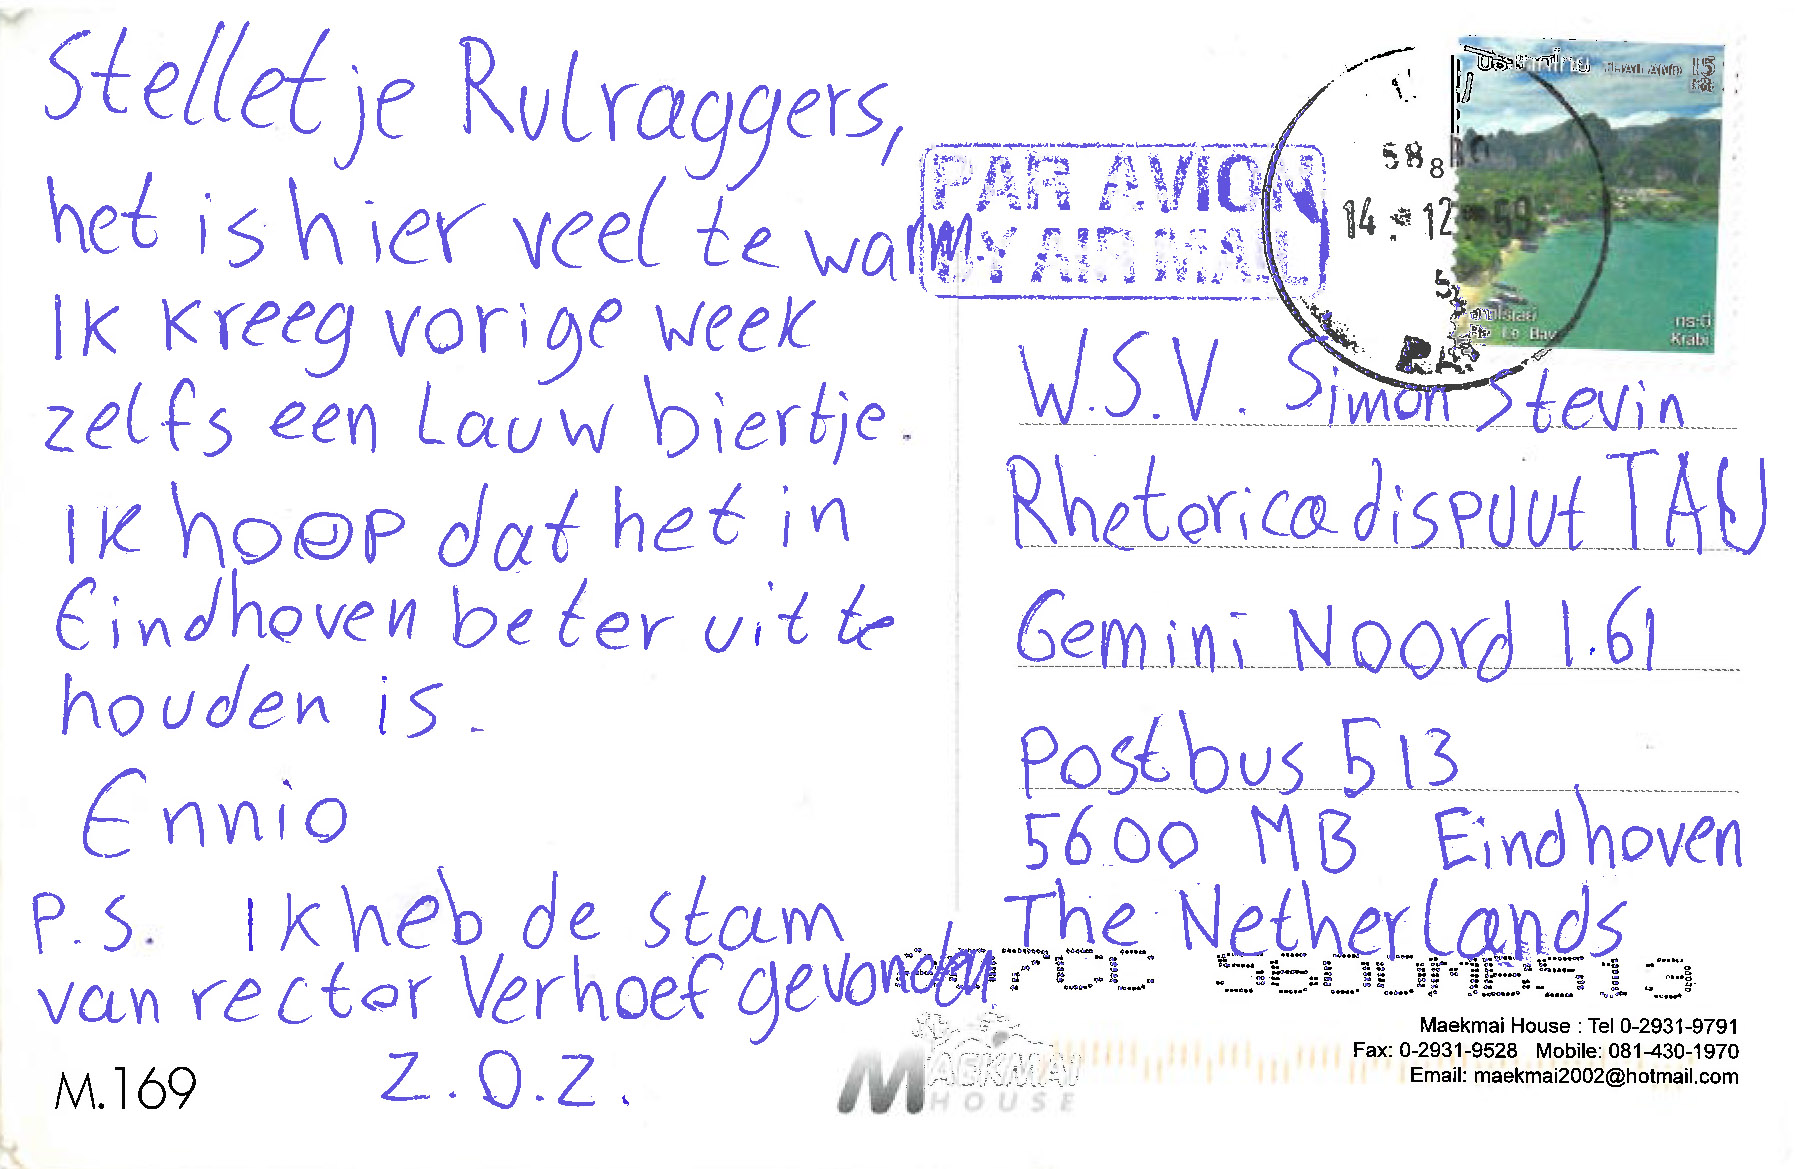 Stelletje Rulraggers,
het is hier veel te warm.
Ik kreeg vorige week
zelfs een Lauw biertje.
Ik hoop dat het in
Eindhoven beter uit te
houden is.
Ennio
P.S. Ik heb de stam
van rector Verhoef gevonden
Z.O.Z.
M.169
PAR AVION
BY AIR MAIL
THAILAND 15
14 12 59
กระบี่
Krabi
W.S.V. Simon Stevin
Rhetorica dispuut TAU
Gemini Noord 1.61
Postbus 513
5600 MB Eindhoven
The Netherlands
5600MB513
Maekmai House : Tel 0-2931-9791
Fax: 0-2931-9528 Mobile: 081-430-1970
Email: maekmai2002@hotmail.com
MAEKMAI
HOUSE